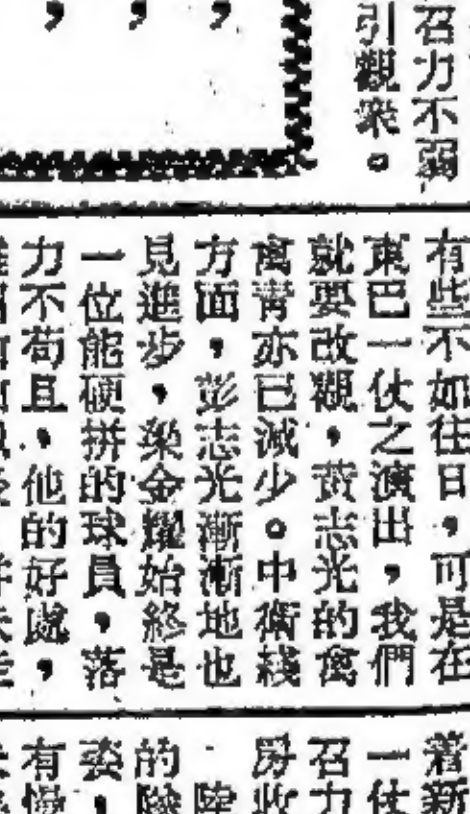 召力不弱
引觀衆。
有些不如往日，可是在
東巴一仗之演出，我們
就要改觀，黃志光的禽
禽青亦已減少。中衛綫
方面，彭志光漸漸地也
見進步，梁金耀始終是
一位能硬拼的球員，落
力不苟且，他的好處，
着新
一仗
召力
房收
陸
的陵
姿，
有慢